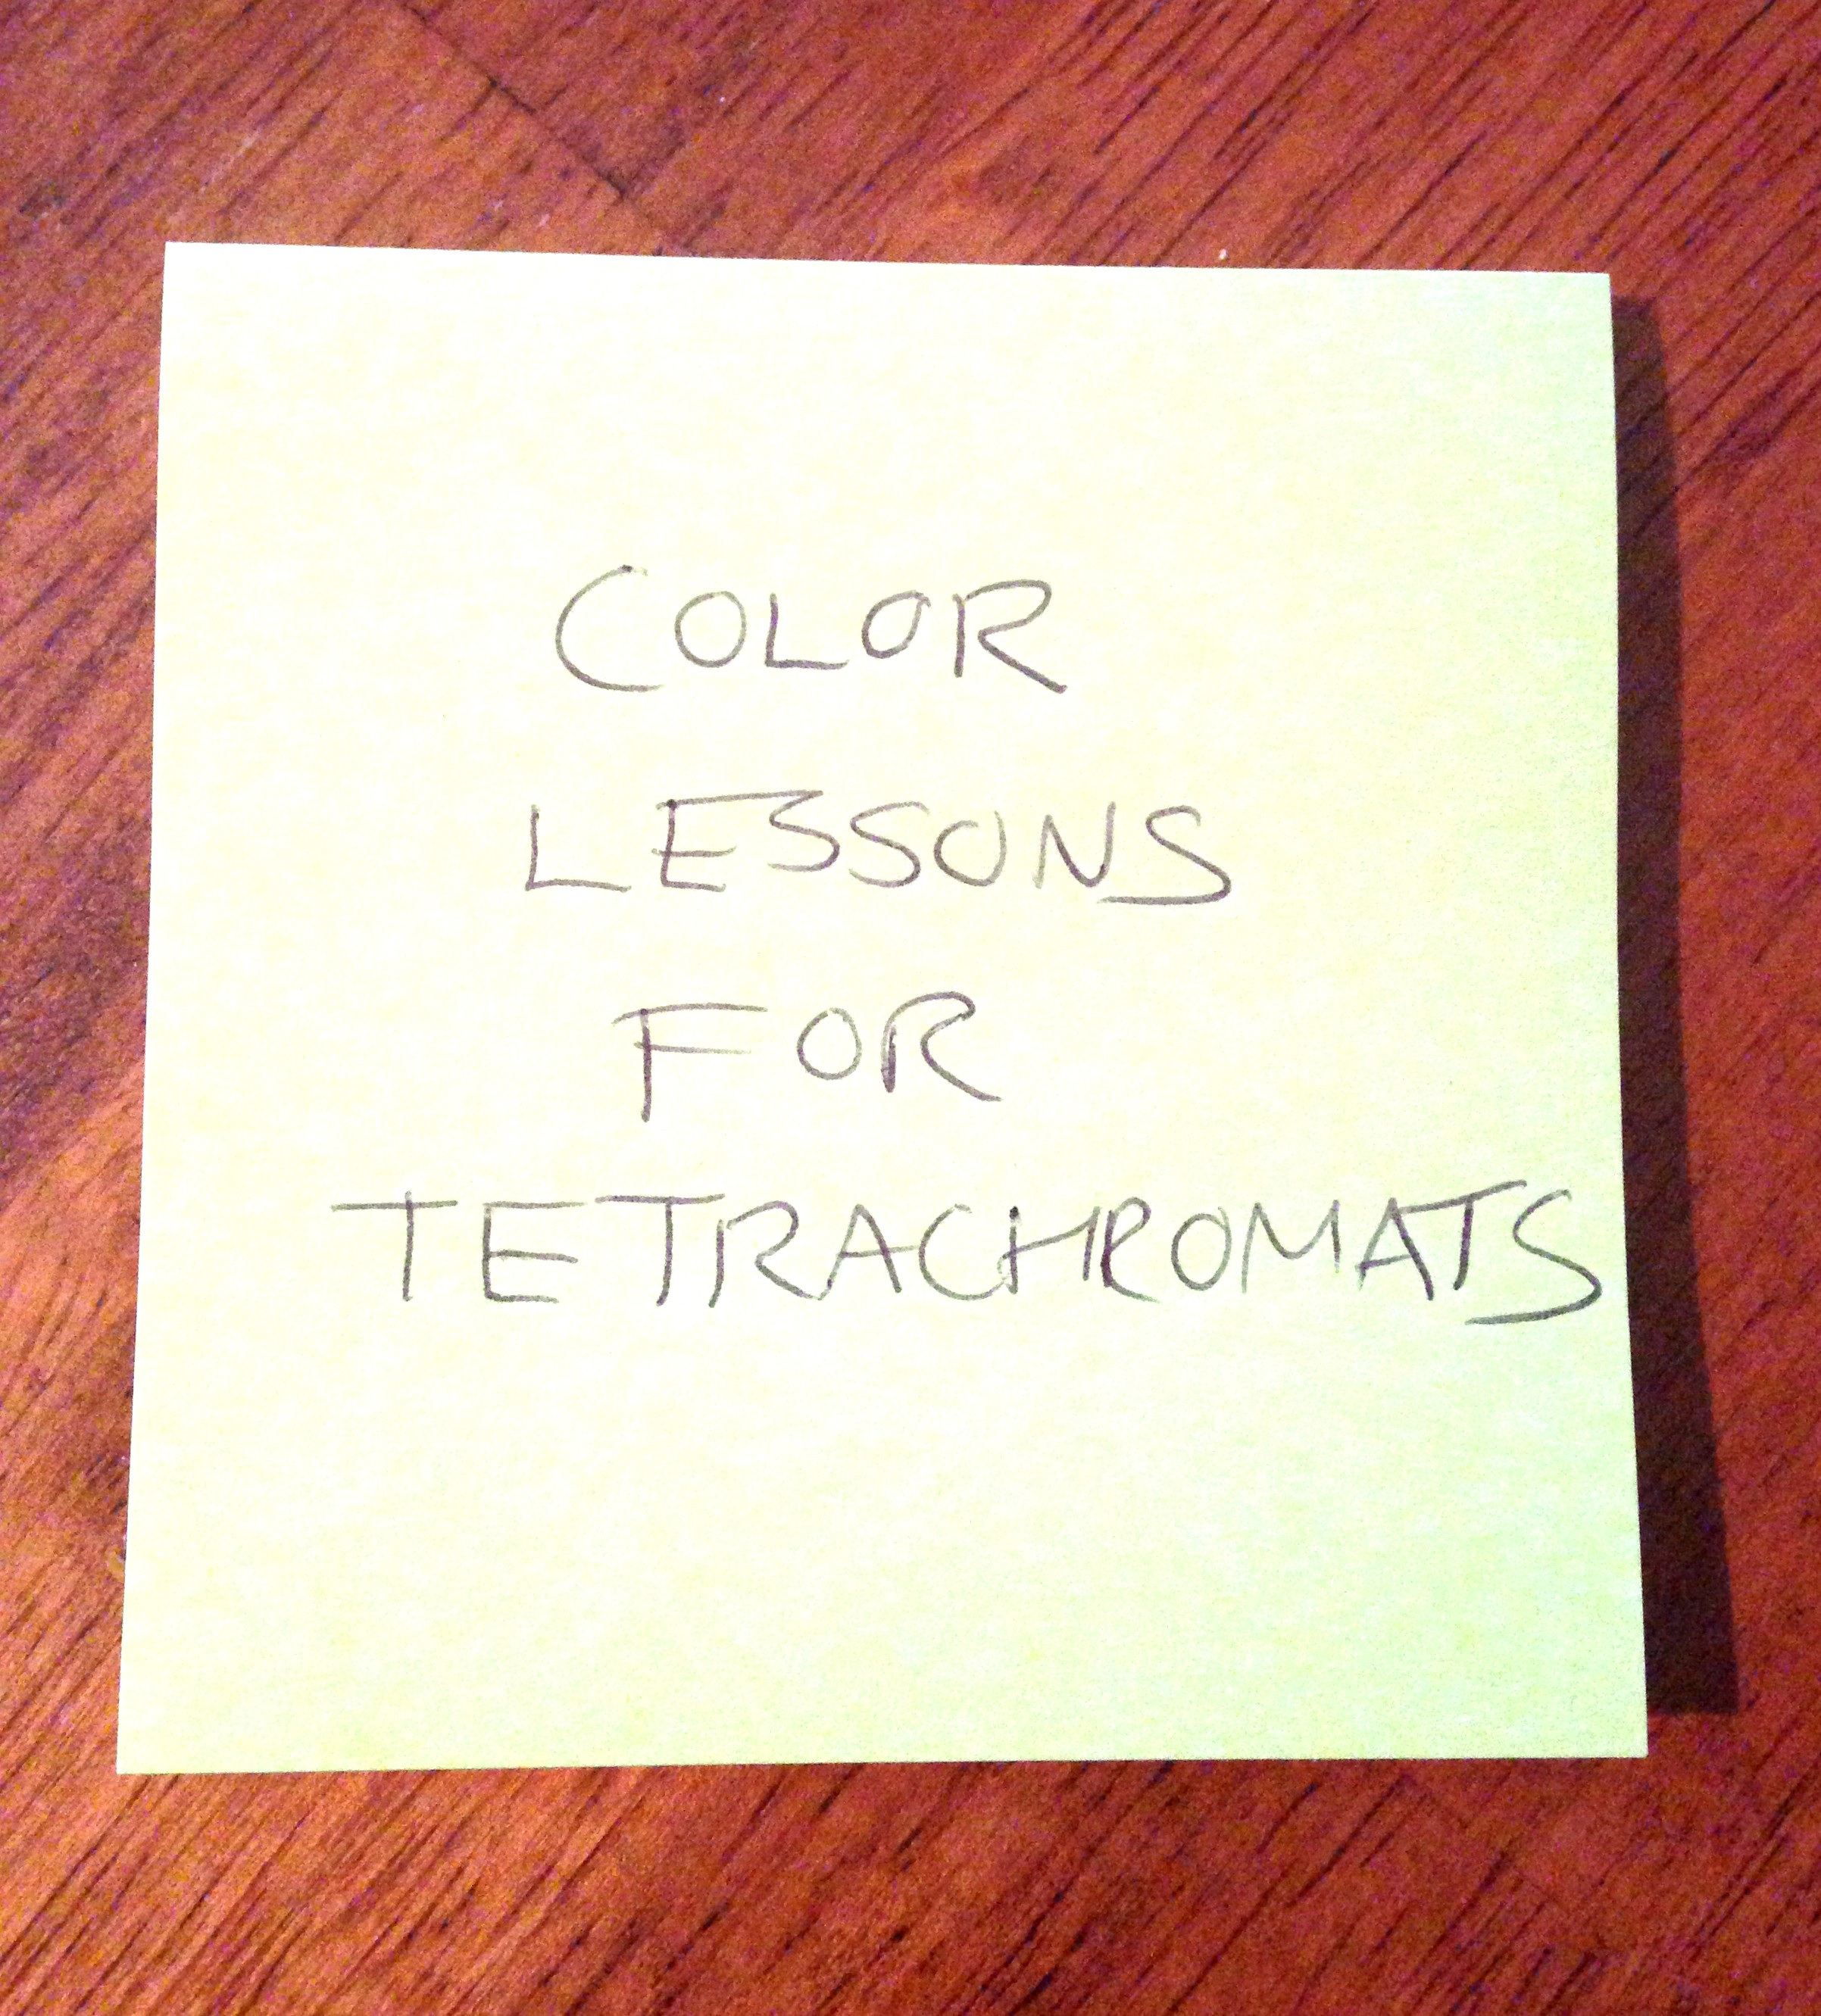 COLOR
LESSONS
FOR
TETRACHROMATS